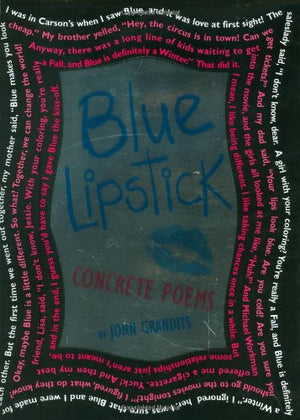 I was in Carson's when I saw Blue, and it was love at first sight! The
saleslady said, "I don't know, dear. A girl with your coloring? You're really a Fall, and Blue is definitely
a Winter." I ignored her,
Blue and I were made for
each other. But the first time we went out together, my mother said, "Blue makes you look
cheap." My brother yelled, "Hey, the circus is in town! Can we
get tickets?" And my dad said, "your lips look blue. Are you cold? Are you sure you
should go to the movies tonight?" I figured, what do they know?
Okay, maybe Blue is a little different. So what? Together, we can change the world!
Anyway, there was a long line of kids waiting to get into
the movie, and the girls all looked at me like, "Huh?" And Michael Workman
offered me a cigarette. Yuck! And then my best
friend, Lisa, said, "I don't know, Jessie. With your coloring, you're really
a Fall, and Blue is definitely a Winter." That did it.
I mean, I like being different. I like taking chances once in a while. But
some relationships just weren't meant to be
and in the end, I guess you'd have to say I gave Blue the kiss-off.
Blue
Lipstick
CONCRETE POEMS
BY JOHN GRANDITS